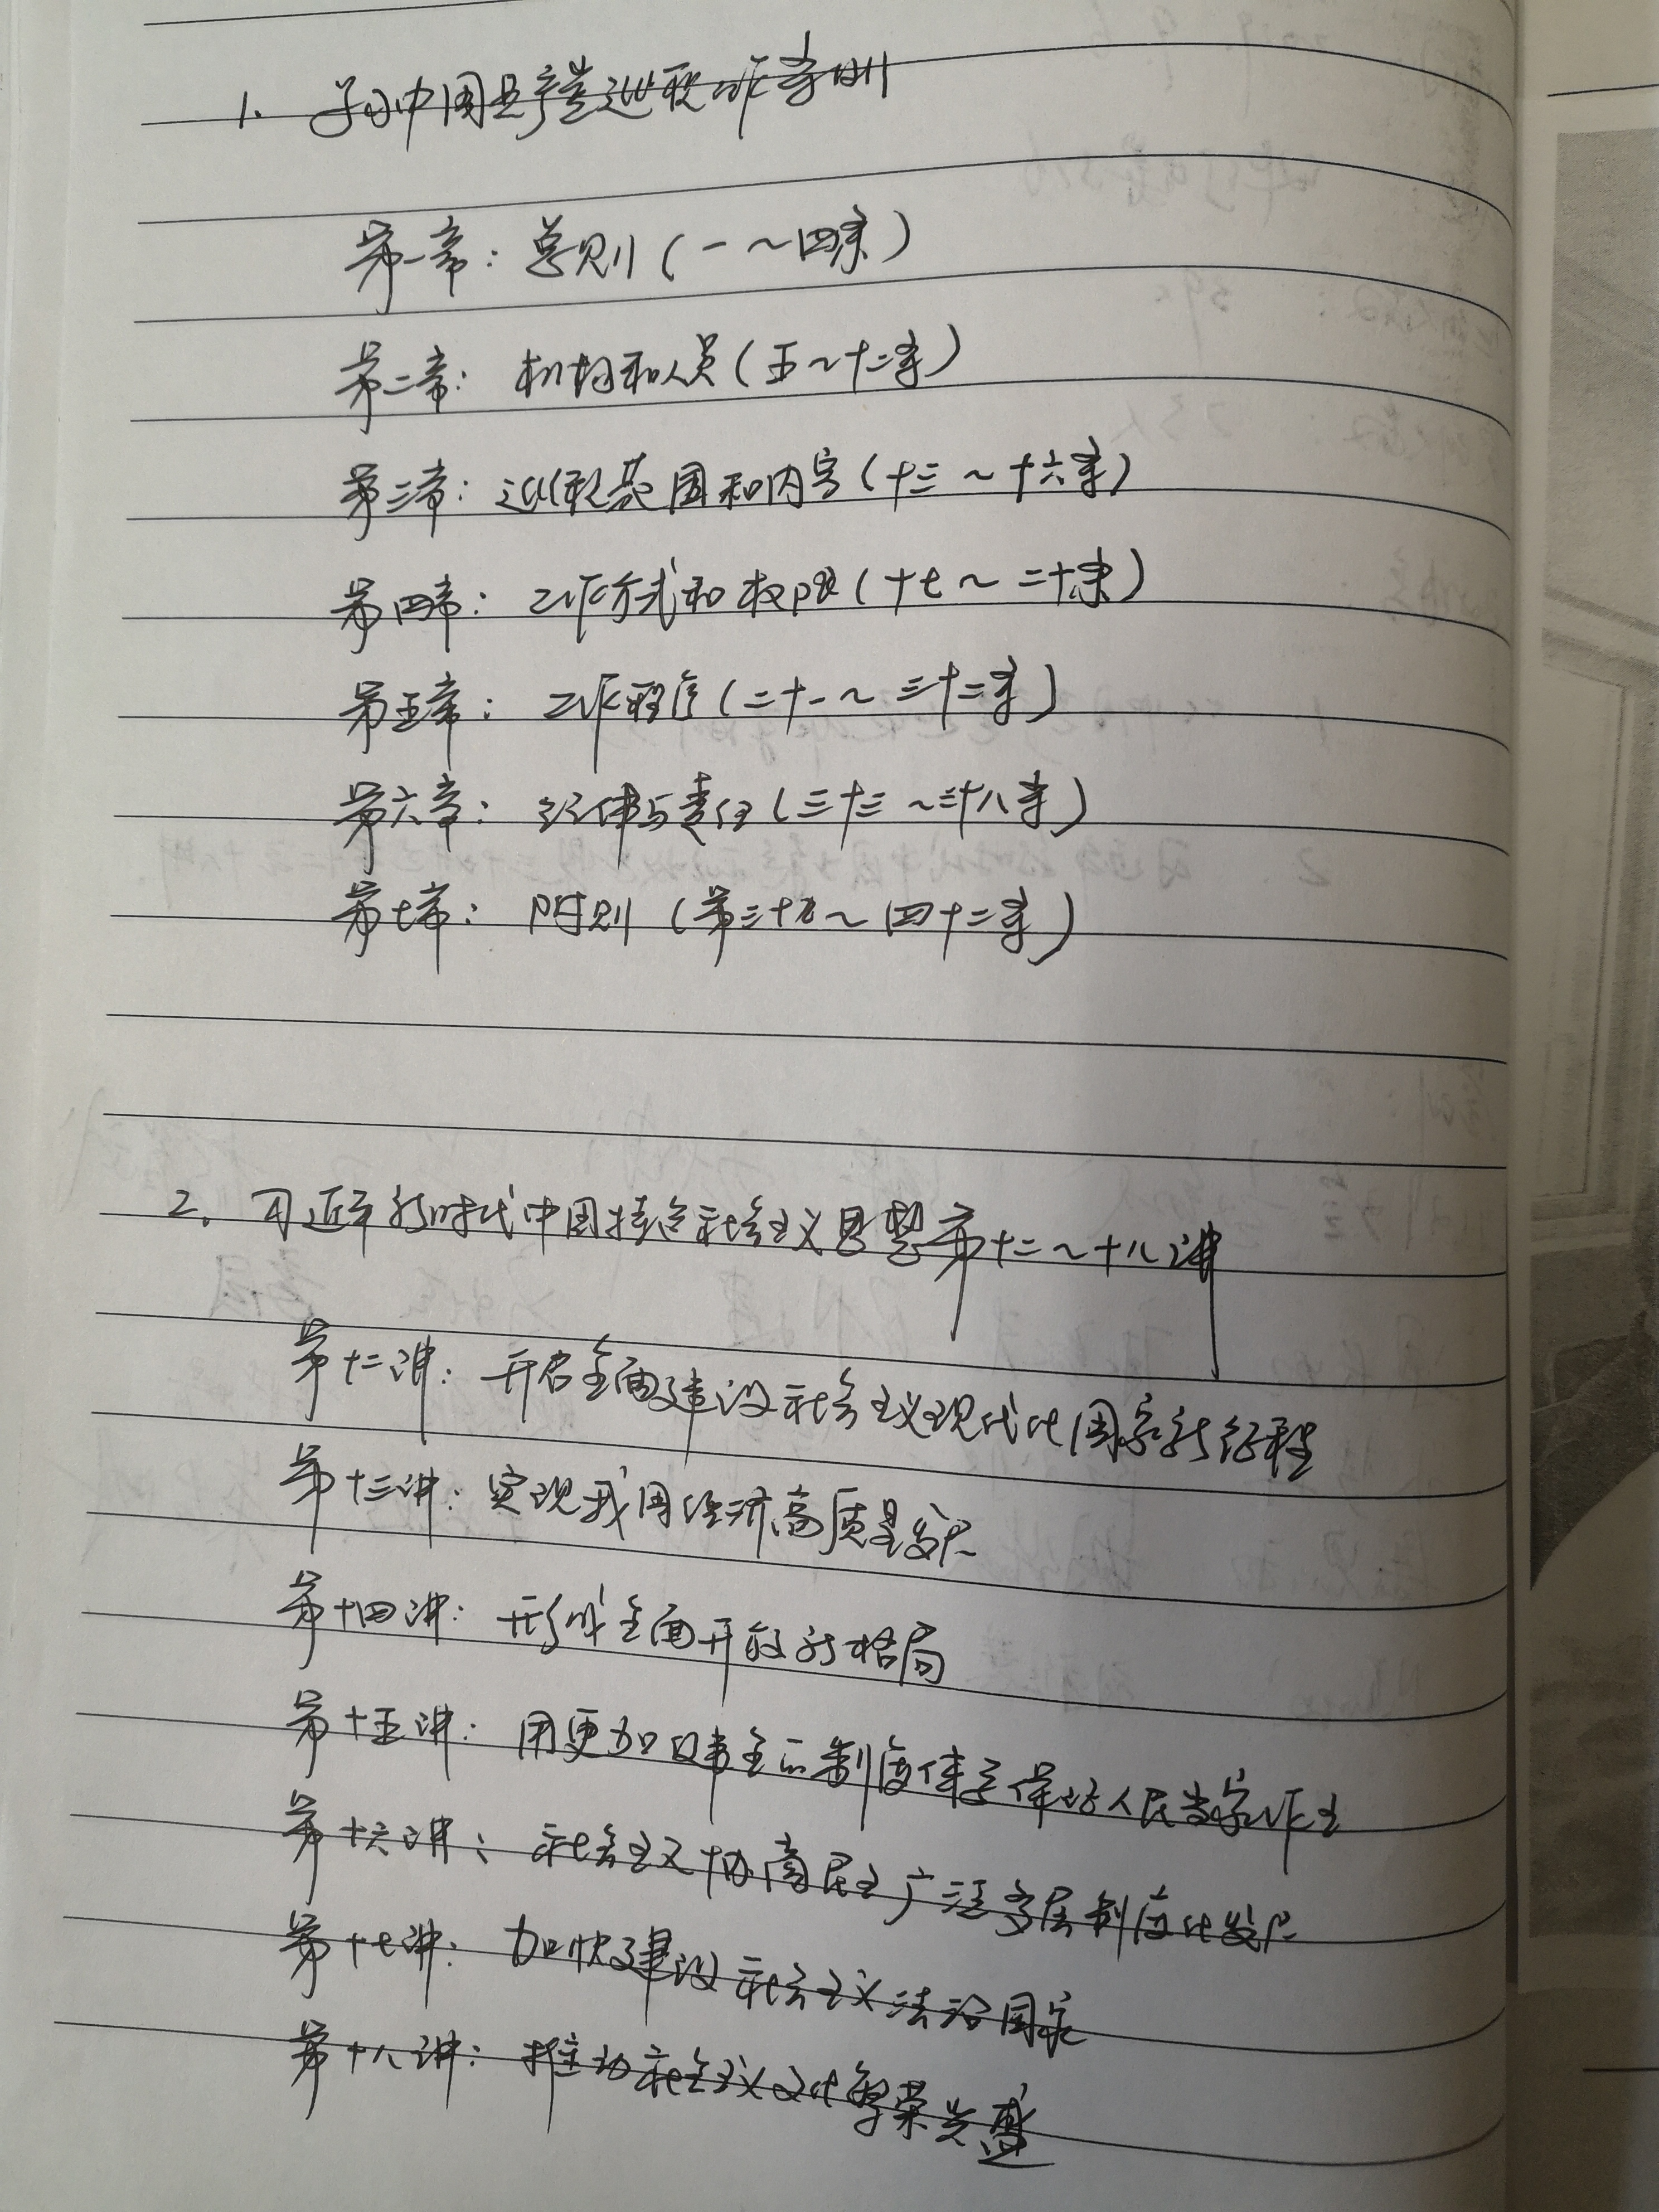 1. 学习中国共产党巡视工作条例
第一章：总则（一～四条）
第二章：机构和人员（五～十二条）
第三章：巡视范围和内容（十三～十六条）
第四章：工作方式和权限（十七～二十条）
第五章：工作程序（二十一～三十二条）
第六章：纪律与责任（三十三～三十八条）
第七章：附则（第三十九～四十二条）
2. 习近平新时代中国特色社会主义思想第十二～十八讲
第十二讲：开启全面建设社会主义现代化国家新征程
第十三讲：实现我国经济高质量发展
第十四讲：形成全面开放新格局
第十五讲：用更加健全的制度体系保证人民当家作主
第十六讲：社会主义协商民主广泛多层制度化发展
第十七讲：加快建设社会主义法治国家
第十八讲：推动社会主义文化繁荣兴盛